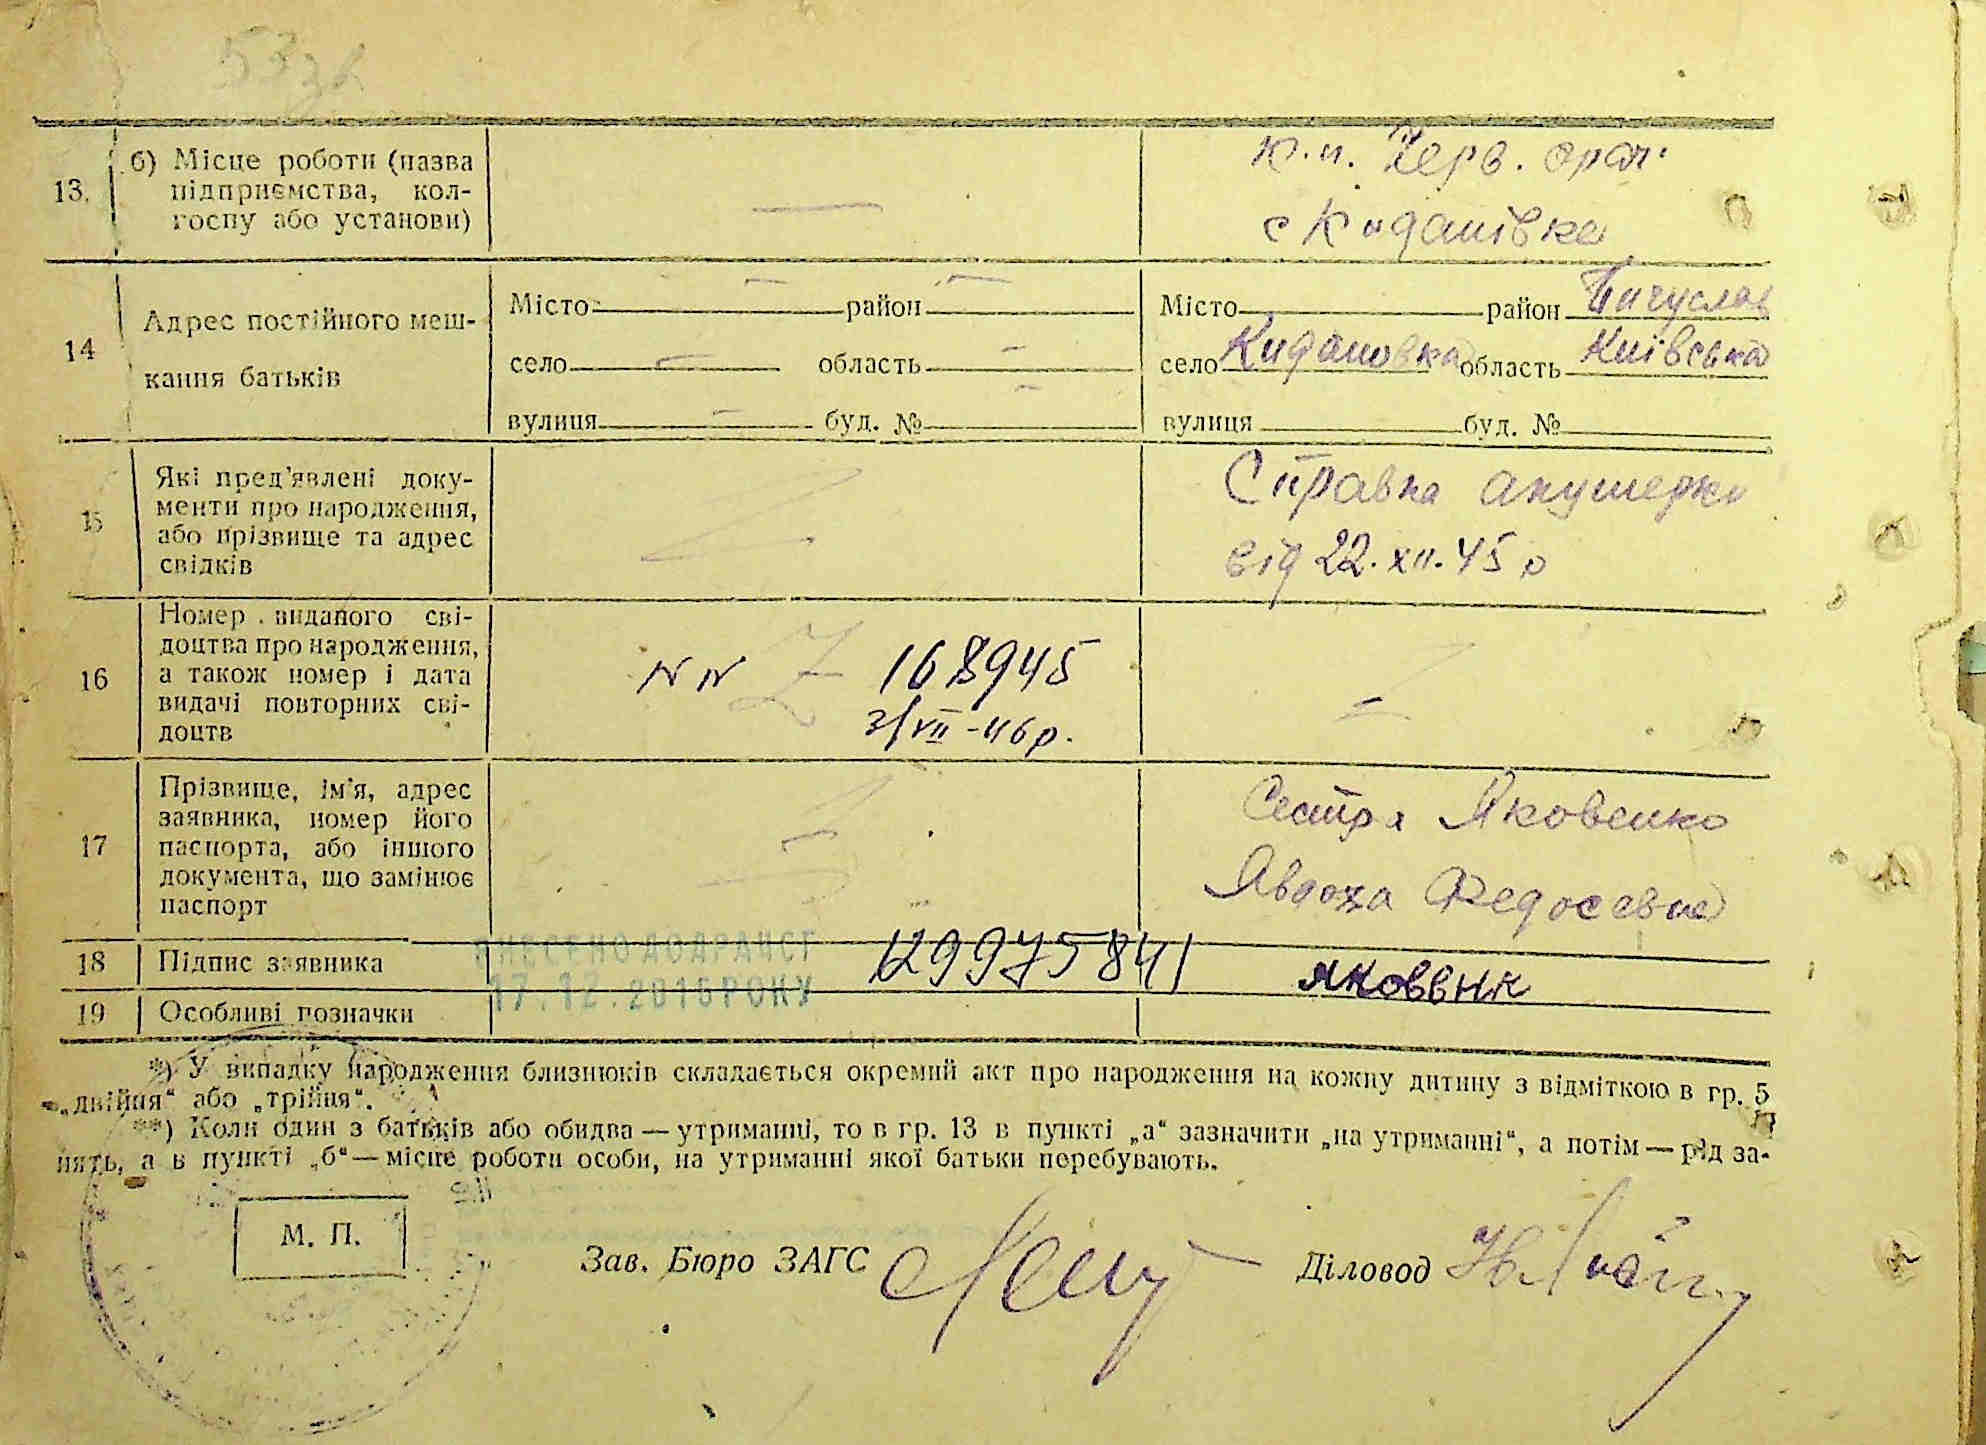 53зв
13. б) Місце роботи (назва
підприємства, кол-
госпу або установи)
— к.и. Черв. орач
с Кидашівка
14 Адрес постійного меш-
кання батьків
Місто — район — Місто район
село — область — село Кидашовка область Київська
вулиця — буд. № — вулиця буд. №
15 Які пред'явлені доку-
менти про народження,
або прізвище та адрес
свідків
Справка акушерки
від 22.XII.45 р
16 Номер виданого сві-
доцтва про народження,
а також номер і дата
видачі повторних сві-
доцтв
NN 168945
3/VII-46р.
17 Прізвище, ім'я, адрес
заявника, номер його
паспорта, або іншого
документа, що замінює
паспорт
Сестра Яковенко
Явдоха Федосевна
18 Підпис заявника 129975841 яковвнк
ВНЕСЕНО ДО ДРАЦСГ
17.12.2016 РОКУ
19 Особливі позначки
*) У випадку народження близнюків складається окремий акт про народження на кожну дитину з відміткою в гр. 5
„двійня“ або „трійня“.
**) Коли один з батьків або обидва — утриманці, то в гр. 13 в пункті „а“ зазначити „на утриманні“, а потім — рід за-
нять, а в пункті „б“ — місце роботи особи, на утриманні якої батьки перебувають.
М. П.
Зав. Бюро ЗАГС Діловод